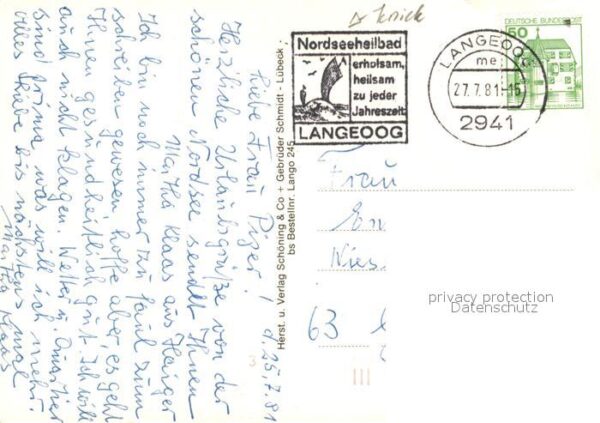 d. 25.7.81
Liebe Frau Piger!
Herzliche Urlaubsgrüße von der
schönen Nordsee sendet Ihnen
Martha Klaas aus Haiger
Ich bin noch immer zu faul zum
schreiben gewesen, hoffe aber, es geht
Ihnen gesundheitlich gut. Ich will
auch nicht klagen. Wetter u. Quartier
sind prima was will ich mehr.
alles Liebe bis nächstens mal
Martha Klaas
Herst. u. Verlag Schöning & Co + Gebrüder Schmidt · Lübeck ·
bs Bestellnr. Lango 245
Nordseeheilbad
erholsam,
heilsam
zu jeder
Jahreszeit
LANGEOOG
LANGEOOG
me
27.7.81-15
2941
DEUTSCHE BUNDESPOST
50
Frau
63
privacy protection
Datenschutz